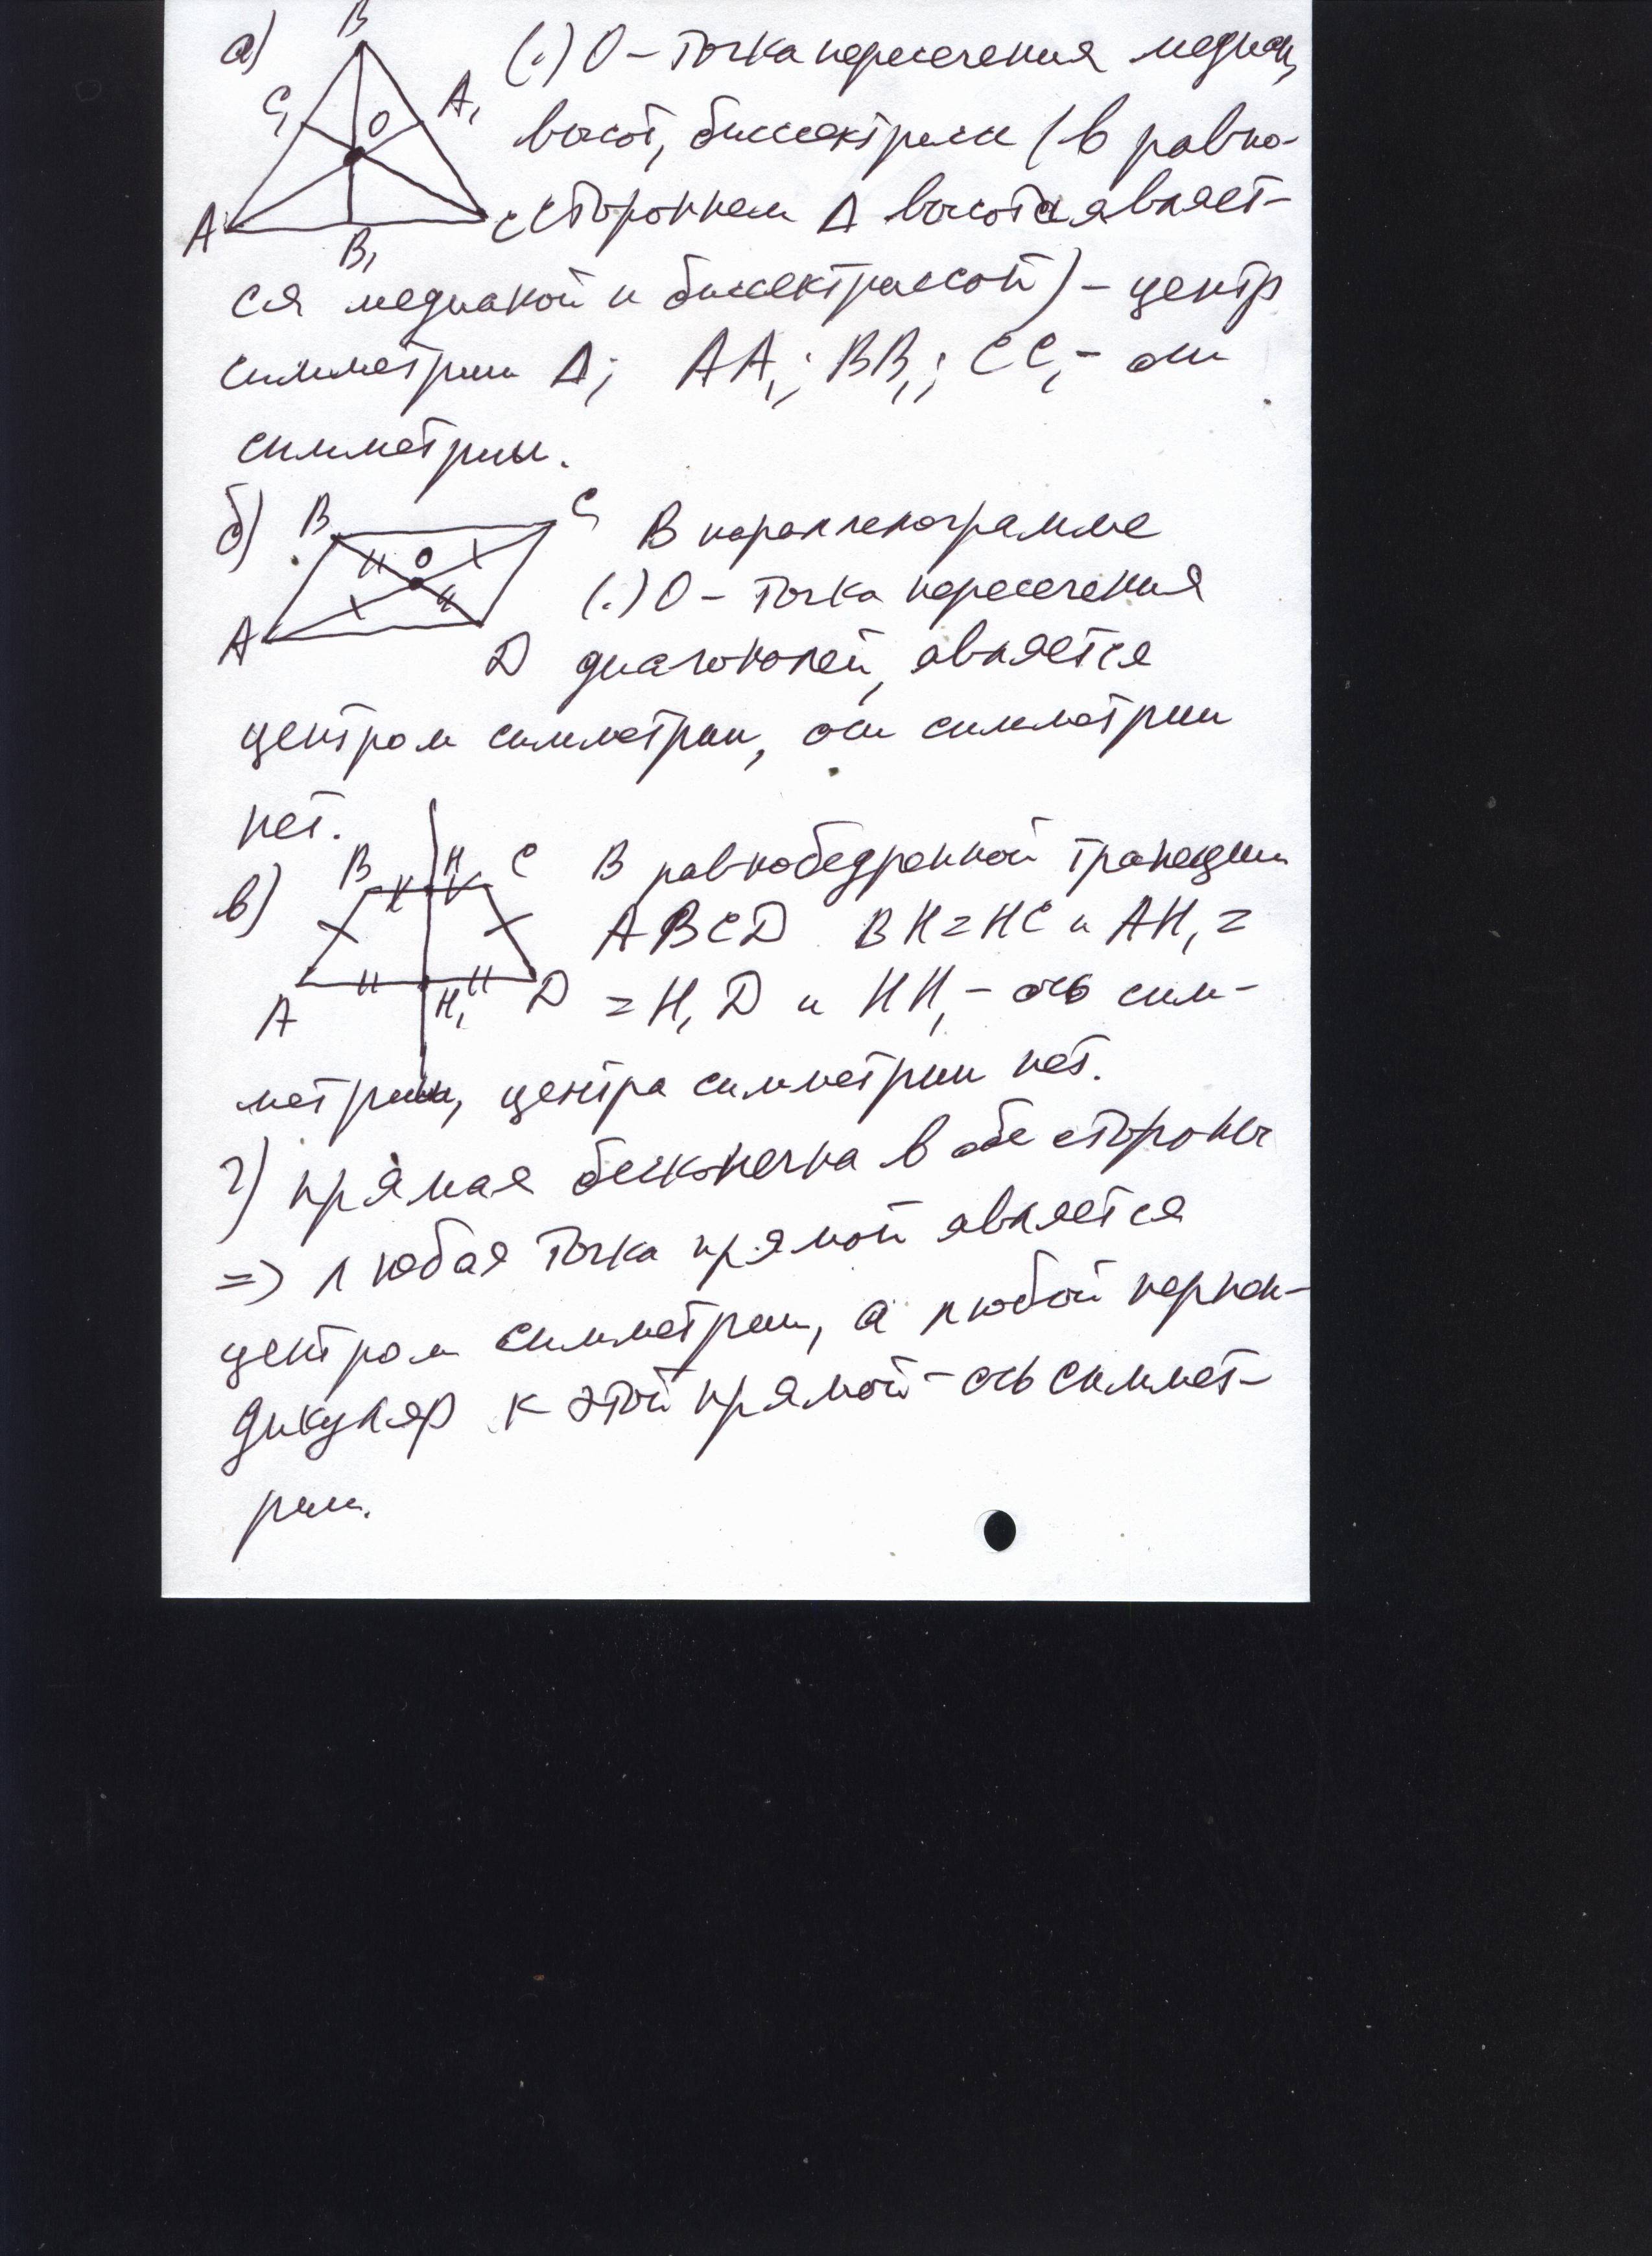 а) B (.) O – точка пересечения медиан,
C₁ O A₁ высот, биссектрисс (в равно-
A B₁ C стороннем Δ высота являет-
ся медианой и биссектриссой) – центр
симметрии Δ; AA₁; BB₁; CC₁ – оси
симметрии.
б) B O C В параллелограмме
(.) O – точка пересечения
A D диагоналей, является
центром симметрии, оси симметрии
нет.
в) B H C В равнобедренной трапеции
ABCD BH = HC и AH₁ =
A H₁ D = H₁D и HH₁ – ось сим-
метрии, центра симметрии нет.
г) прямая бесконечна в обе стороны
=> любая точка прямой является
центром симметрии, а любой перпен-
дикуляр к этой прямой – ось симмет-
рии.